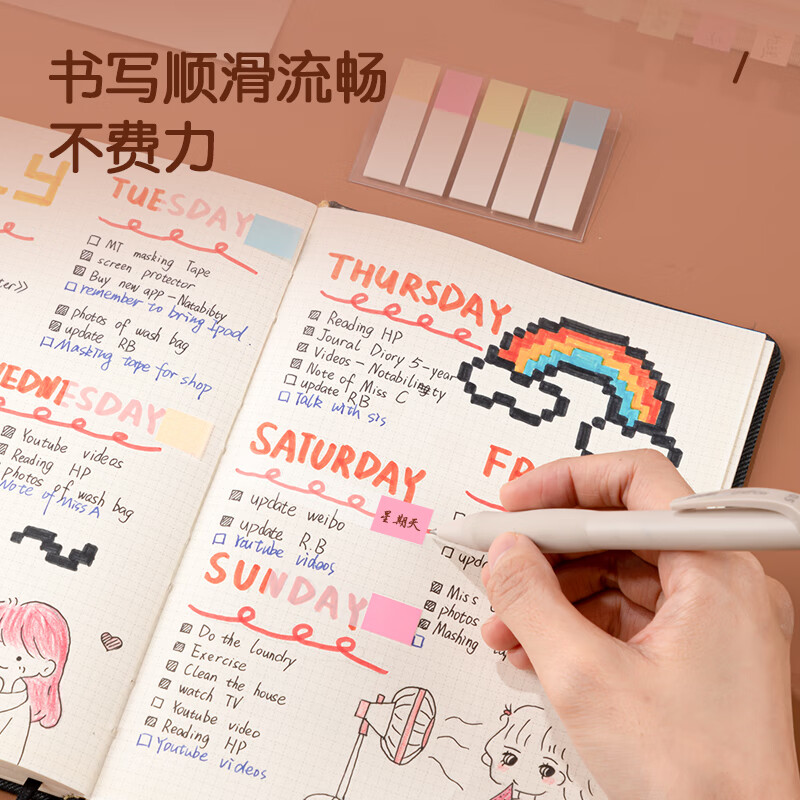 书写顺滑流畅
不费力
LY
TUESDAY
MT masking Tape
screen protector
Buy new app-Natabibty
remember to bring Ipad.
photos of wash bag
update RB
Masking tape for shop
WEDNESDAY
Youtube videos
Reading HP
photos of wash bag
Note of Miss A
THURSDAY
Reading HP
Joural Diory 5-year
Videos-Notability
Note of Miss C
update R.B
Talk with sis
SATURDAY
update weibo
update R.B
Youtube videos
星期天
SUNDAY
Do the loundry
Exercise
Clean the house
watch TV
Youtube video
Reading HP
Youtube videos
FR
upda
Miss
photos
Mashing